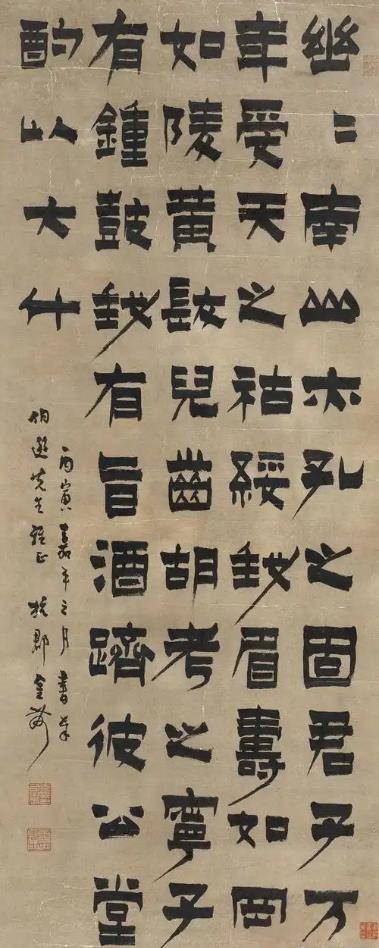 幽〻南山亦孔之固君子万
年受天之祜綏我眉壽如岡
如陵黃髮兒齒胡考之寧子
有鍾鼓我有旨酒躋彼公堂
酌以大斗
丙寅嘉平之月書奉
伯 先生雅正 杭郡金農